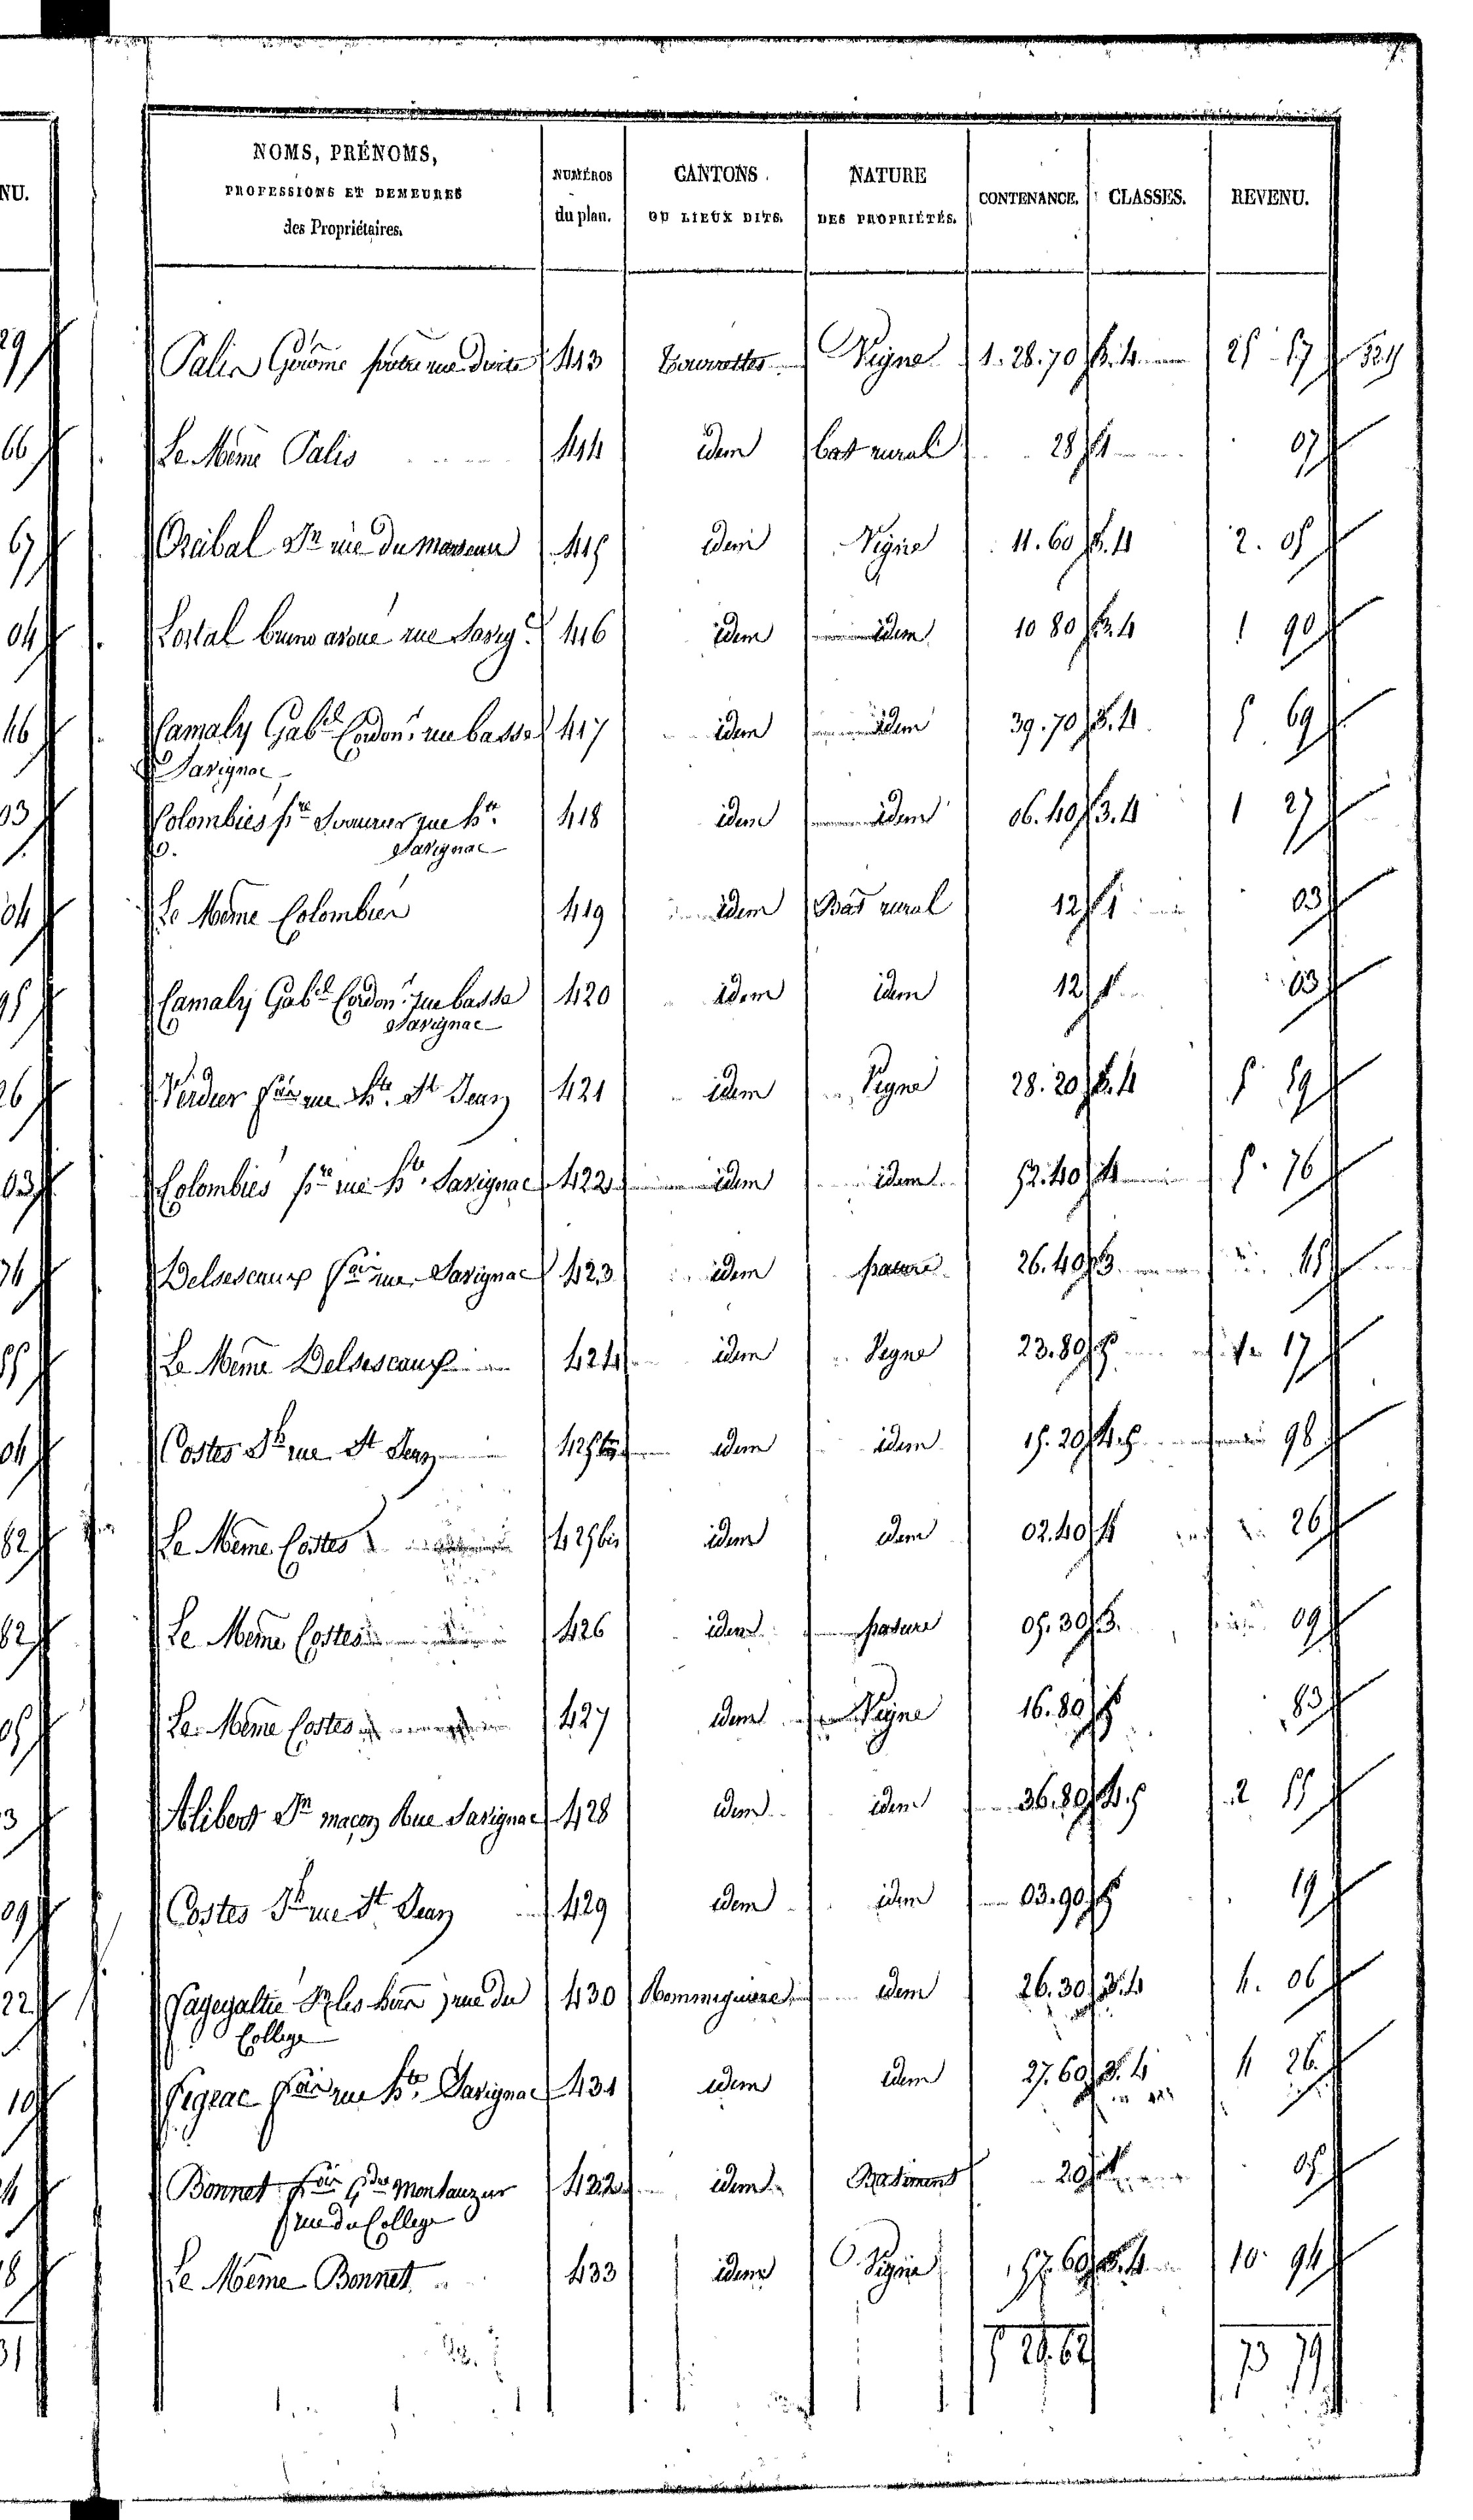 NOMS, PRÉNOMS,
PROFESSIONS ET DEMEURES
des Propriétaires.
NUMÉROS
du plan.
CANTONS
OU LIEUX DITS.
NATURE
DES PROPRIÉTÉS.
CONTENANCE.
CLASSES.
REVENU.
NU.
Palis Gérome rue droite 413 Tourrettes Vigne 1.28.70 3.4 25 57
Le Même Palis 414 idem bat rural 28 1 07
Orcibal rue du 415 idem Vigne 11.60 3.4 2.05
Lortal bruno avoué rue Savig.c 416 idem idem 10 80 3.4 1 90
Camaly Gab.el Cordon.r rue basse 417 idem idem 39.70 3.4 5 69
Savignac
Colombiés p.re rue h.te 418 idem idem 06.40 3.4 1 27
Savignac
Le Même Colombiés 419 idem Bat rural 12 1 03
Camaly Gab.el Cordon.r rue basse 420 idem idem 12 1 03
Savignac
Verdier f.ois rue h.te St Jean 421 idem Vigne 28.20 3.4 5 59
Colombiés p.re rue h.te Savignac 422 idem idem 52.40 4 5.76
Delsescaux f.ois rue Savignac 423 idem pature 26.40 3 45
Le Même Delsescaux 424 idem Vigne 23.80 5 1 17
Costes J.h rue St Jean 425 idem idem 15.20 4.5 98
Le Même Costes 425 bis idem idem 02.40 4 26
Le Même Costes 426 idem pature 05.30 3 09
Le Même Costes 427 idem Vigne 16.80 5 83
Alibert J.n maçon Rue Savignac 428 idem idem 36.80 4.5 2 55
Costes J.h rue St Jean 429 idem idem 03.90 5 19
Fagegaltié les hers rue du 430 Rommiguiere idem 26.30 3.4 4.06
College
Figeac f.ois rue h.te Savignac 431 idem idem 27.60 3.4 4 26
Bonnet f.ois Montauzur 432 idem Batiment 20 1 05
rue du College
Le Même Bonnet 433 idem Vigne 57.60 3.4 10 94
5 29.62
73 79